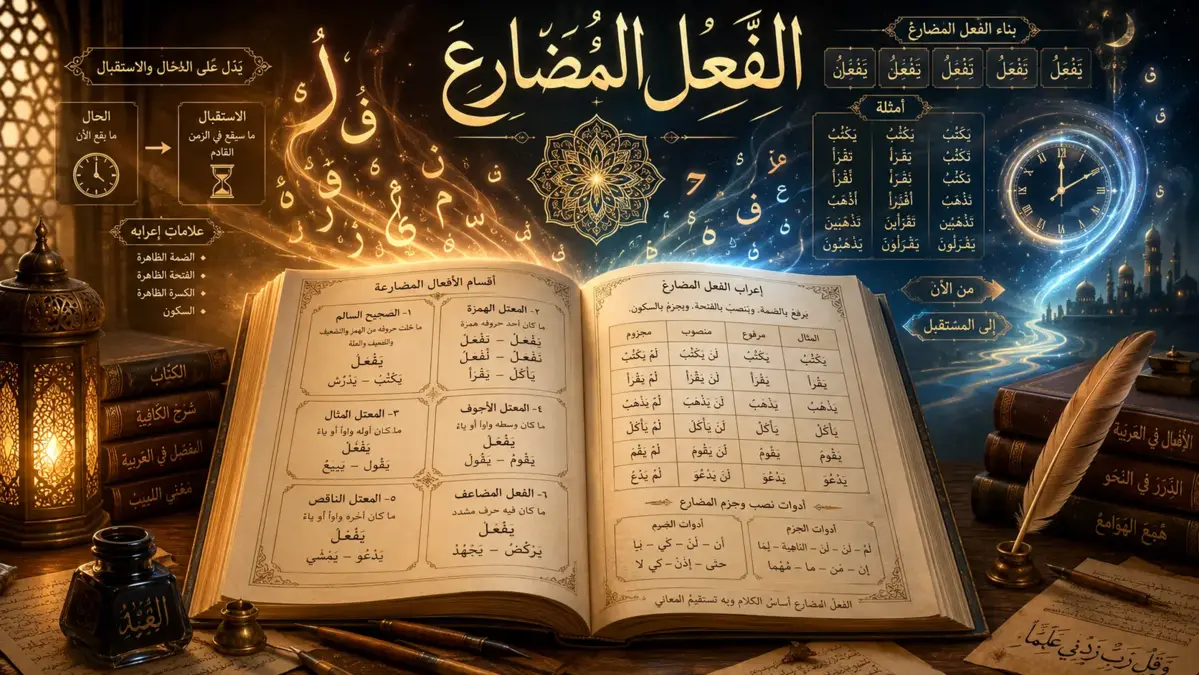 الفَّعُل المُضَارِعَ
يَدَل عَلى الحَال والاستقبال
الاستقبال
ما سيقع في الزمن
القادم
الحال
ما يقع الأن
علامات إعرابه
الضمة الظاهرة
الفتحة الظاهرة
الكسرة الظاهرة
السكون
بناء الفعل المضارعُ
يَفْعَلُ
تَفْعُلُ
تَفْعُلُ
أمثلة
يَكْتُبُ يَكْتُبُ يَكْتُبُ
تَكْتُبُ يَقْرَأُ تَقْرَأُ
تَكْتُبُ تَقْرَأُ نَُقْرَأُ
تَذهَب أَذْهَبُ
تَذْهَبِين تَقرَأين تَذْهَبين
يَذهَبُونَ
من الأن
إلى المشتقبل
إعراب الفعل المضارعَ
يرفعَ بالضمة، وينصبُ بالفتحة، ويجزمُ بالسكون.
المثال مرفوع منصوب مجزوم
يَكْتُبُ يَكْتُبُ لَنَ يَكْتُبُ لَمُ يَكْتُبُ
يَقْرَأ يَقْرَأ لَنَ يَقْرَأ لَمُ يَقْرَأ
يَذْهَبُ يَذْهَبُ لَنَ يَذْهَبُ لَمُ يَذْهَبُ
يَأْكَلُ يَأْكَلُ لَنَ يَأْكَلُ لَمُ يَأْكَلُ
يَقُومُ يَقُومُ لَنَ يَقُومَ لَمُ يَقُمْ
يَدْعُوَ يَدْعُوَ لَنَ يَدْعُوَ لَمُ يَدْعُ
أدوات نصب وجزم المضارع
أدوات الجزم
لَمُ – لَنَ – لَنَ – الناهية – لِمَا
إن – مَن – ما – مَُهْما
أدوات
أن – لَنَ – كَي –
حتى – إذَنْ – كي لا
الفعلُ المضارع أساسُ الكلام وبه تستقيمُ المعاني
أقسام الأفعال المضارعة
١- الصحيح السالم
ما خلت حروفه من الهمز والتضعيف
والعلة
يَفْعَلُ
يَكْتُبُ – يَدْرُسُ
٢- المعتل الهمزة
ما كان أحد حروفه همزة
يَفْعَلُ – نَفْعَلُ
تَفْعَلُ – نُفْعَلُ
يَأْكَلُ – يَقْرَأُ
٣- المعتل المثال
ما كان أوله واواً أو ياءً
يَفْعَلُ
يَقُول – يَبِيعُ
٤- المعتل الأجوف
ما كان وسطه واواً أو ياءً
يَفْعَلُ
يَقُومُ – يَقُولَ
٥- المعتل الناقص
ما كان أخره واواً أو ياءً
يَفْعَلُ
يَدْعُوَ – يَمْشي
٦- الفعل المضاعف
ما كان فيه حرف مشدد
يَفْعَلُ
يَركُضُ – يَجْهُدُ
الكتَّابُ
شَرَح الكَافِية
المَفصّل في العربية
مَغْنى اللبيب
الأفعال في العَربَية
الدُِّرَر في النَّحُو
هُمِعَ الهَوَامعُ
وَقُلْ رَبِّ زِدْنِي عَلَمَاً